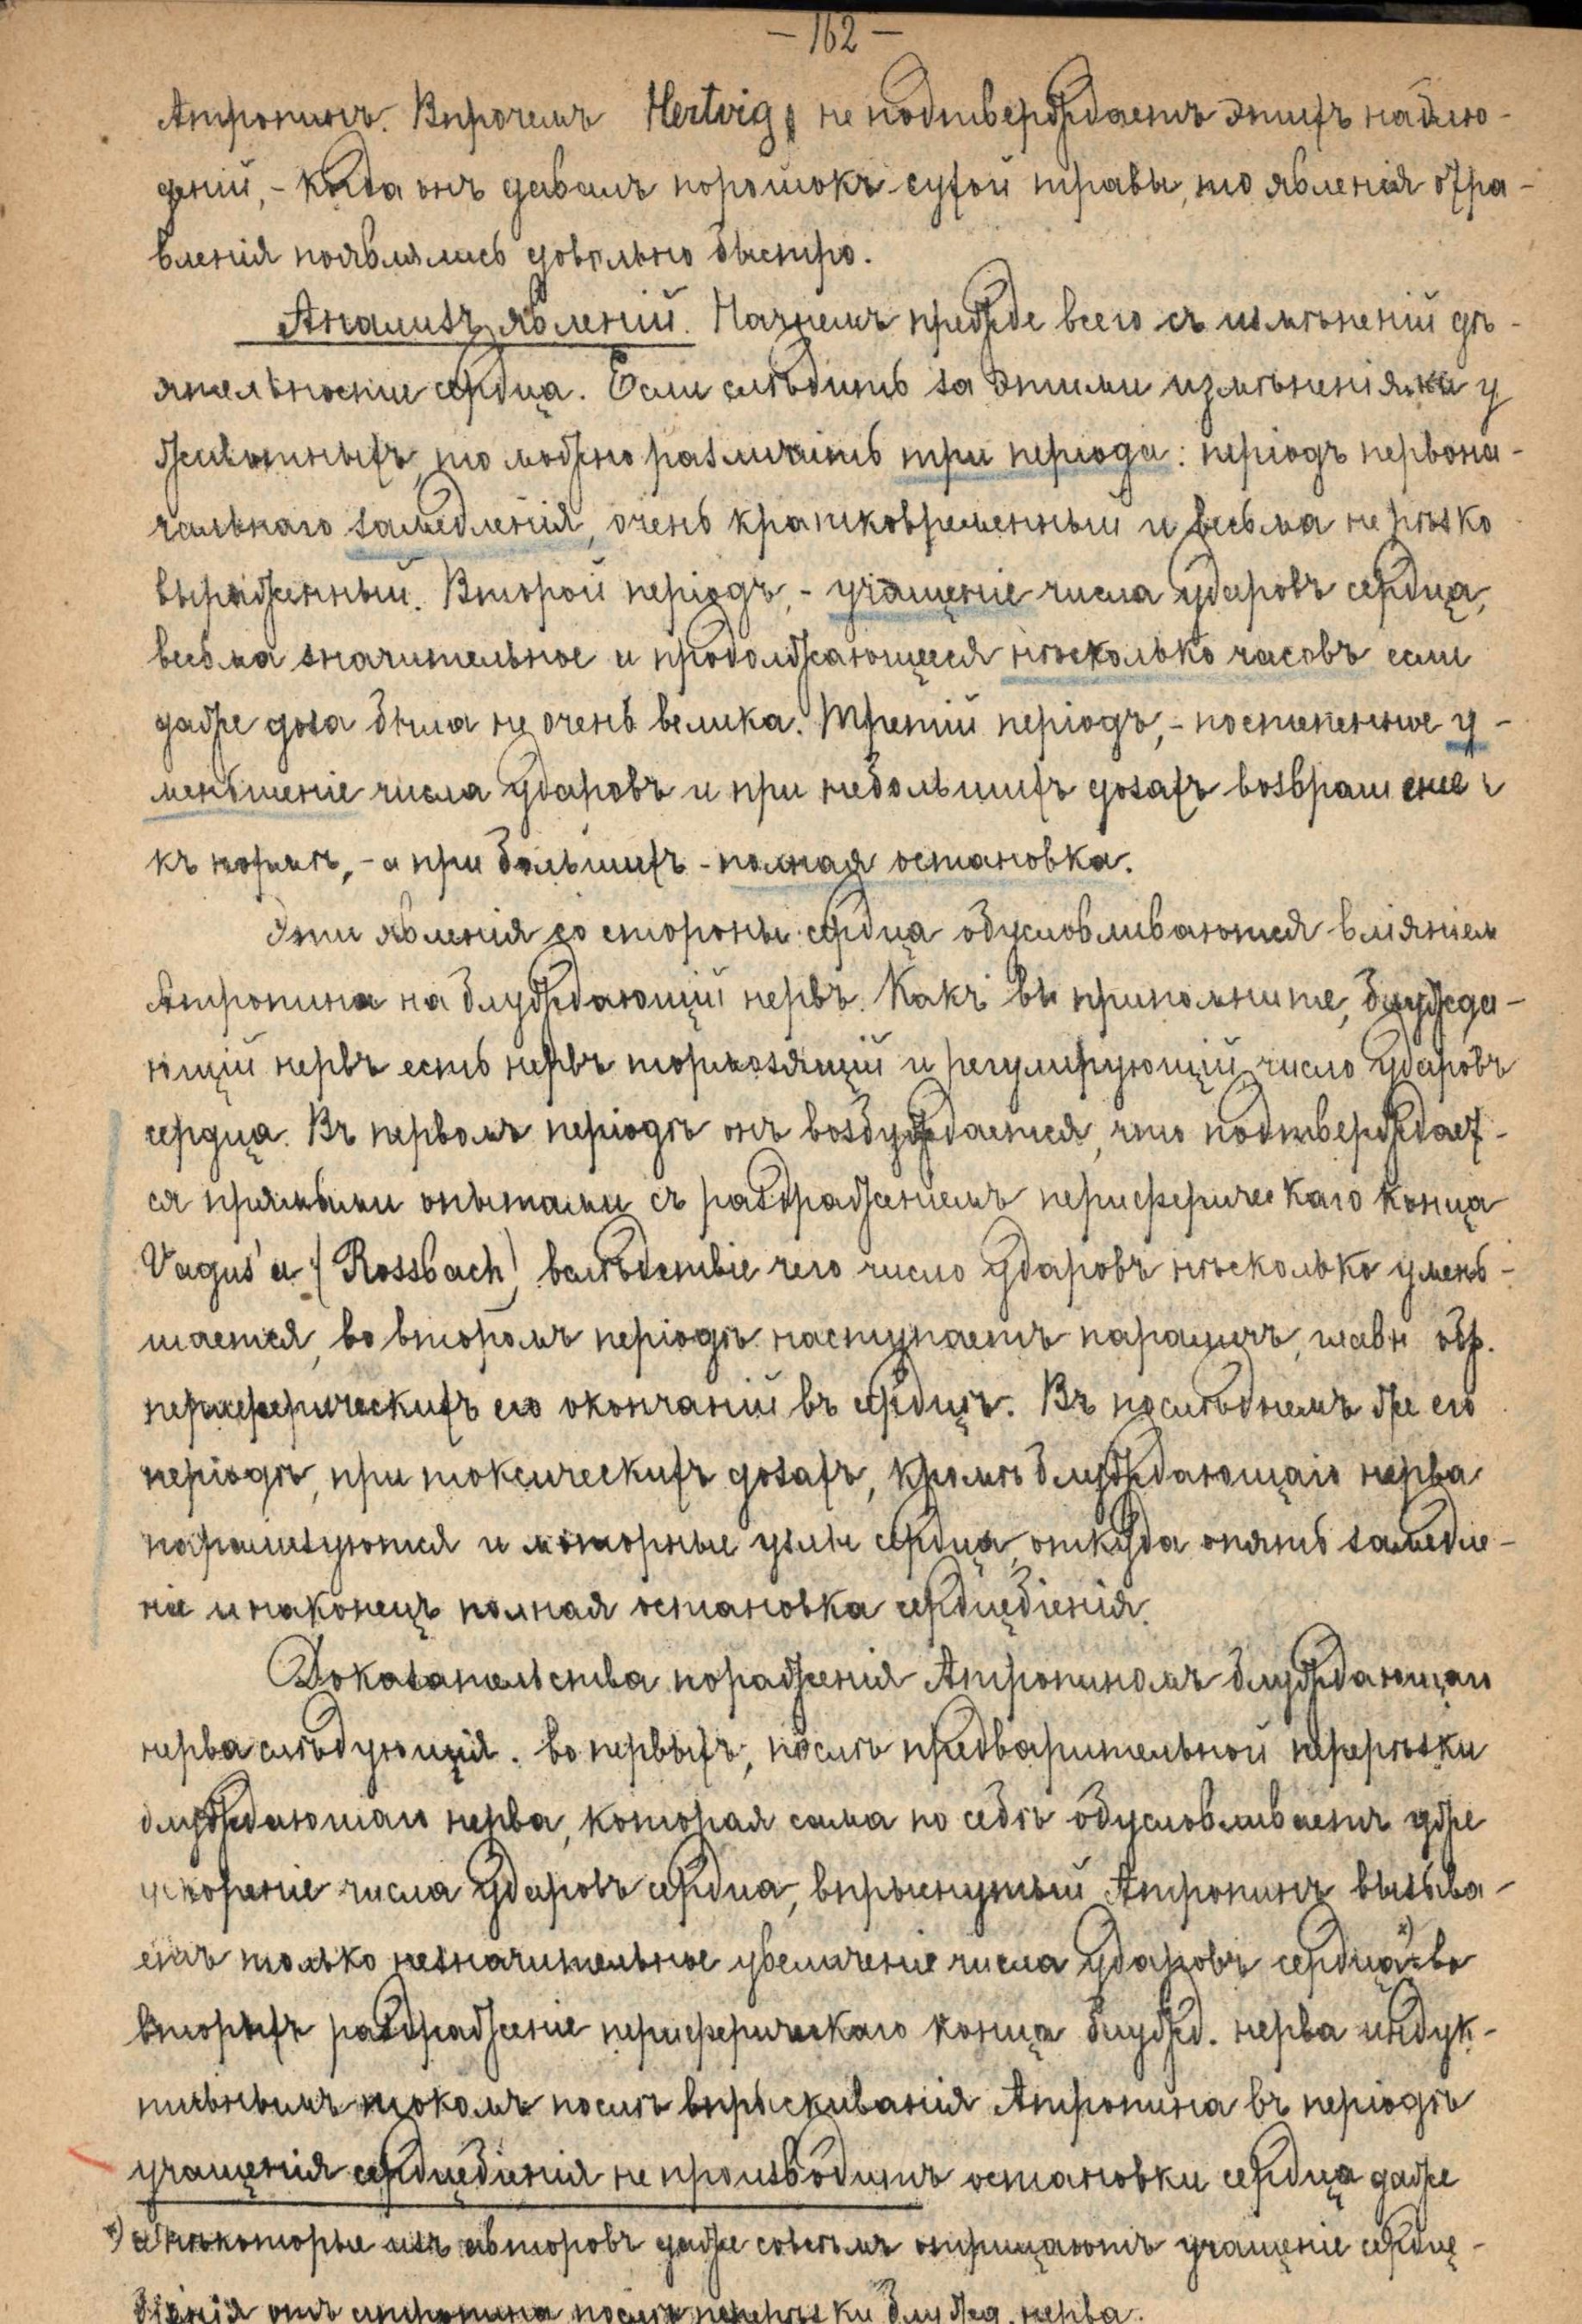 — 162 —
Атропинъ. Впрочемъ Hertvig не подтверждаетъ этихъ наблю-
деній, - когда онъ давалъ порошокъ сухой травы, то явленія отра-
вленія появлялись довольно быстро.
Анализъ явленій. Начнемъ прежде всего съ измѣненій дѣ-
ятельности сердца. Если слѣдить за этими измѣненіями у
животныхъ, то можно различить три періода: періодъ первона-
чальнаго замедленія, очень кратковременный и весьма не рѣзко
выраженный. Второй періодъ, - учащеніе числа ударовъ сердца,
весьма значительное и продолжающееся нѣсколько часовъ если
даже доза была не очень велика. Третій періодъ, - постепенное у-
меньшеніе числа ударовъ и при небольшихъ дозахъ возвращеніе
къ нормѣ, - а при большихъ - полная остановка.
Эти явленія со стороны сердца обусловливаются вліяніем
Атропина на блуждающій нервъ. Какъ вы припомните, блужда-
ющій нервъ есть нервъ тормозящій и регулирующій число ударовъ
сердца. Въ первомъ періодѣ онъ возбуждается, что подтверждает-
ся прямыми опытами съ раздраженіемъ периферическаго конца
Vagus'a (Rossbach) вслѣдствіе чего число ударовъ нѣсколько умень-
шается, во второмъ періодѣ наступаетъ параличъ, главн обр.
периферическихъ его окончаній въ сердцѣ. Въ послѣднемъ же его
періодѣ, при токсическихъ дозахъ, кромѣ блуждающаго нерва
парализуются и моторные узлы сердца, откуда опять замедле-
ніе и наконецъ полная остановка сердцебіенія.
Доказательства пораженія Атропиномъ блуждающаго
нерва слѣдующія. во первыхъ, послѣ предварительной перерѣзки
блуждающаго нерва, которая сама по себѣ обусловливаетъ уже
ускореніе числа ударовъ сердца, впрыснутый Атропинъ вызыва-
етъ только незначительное увеличеніе числа ударовъ сердца*) во
вторыхъ раздраженіе периферическаго конца блужд. нерва индук-
тивнымъ токомъ послѣ впрыскиванія Атропина въ періодѣ
учащенія сердцебіенія не производитъ остановки сердца даже
*) Нѣкоторые изъ авторовъ даже совсѣмъ отрицаютъ учащеніе сердце-
біенія отъ атропина послѣ перерѣзки блужд. нерва.